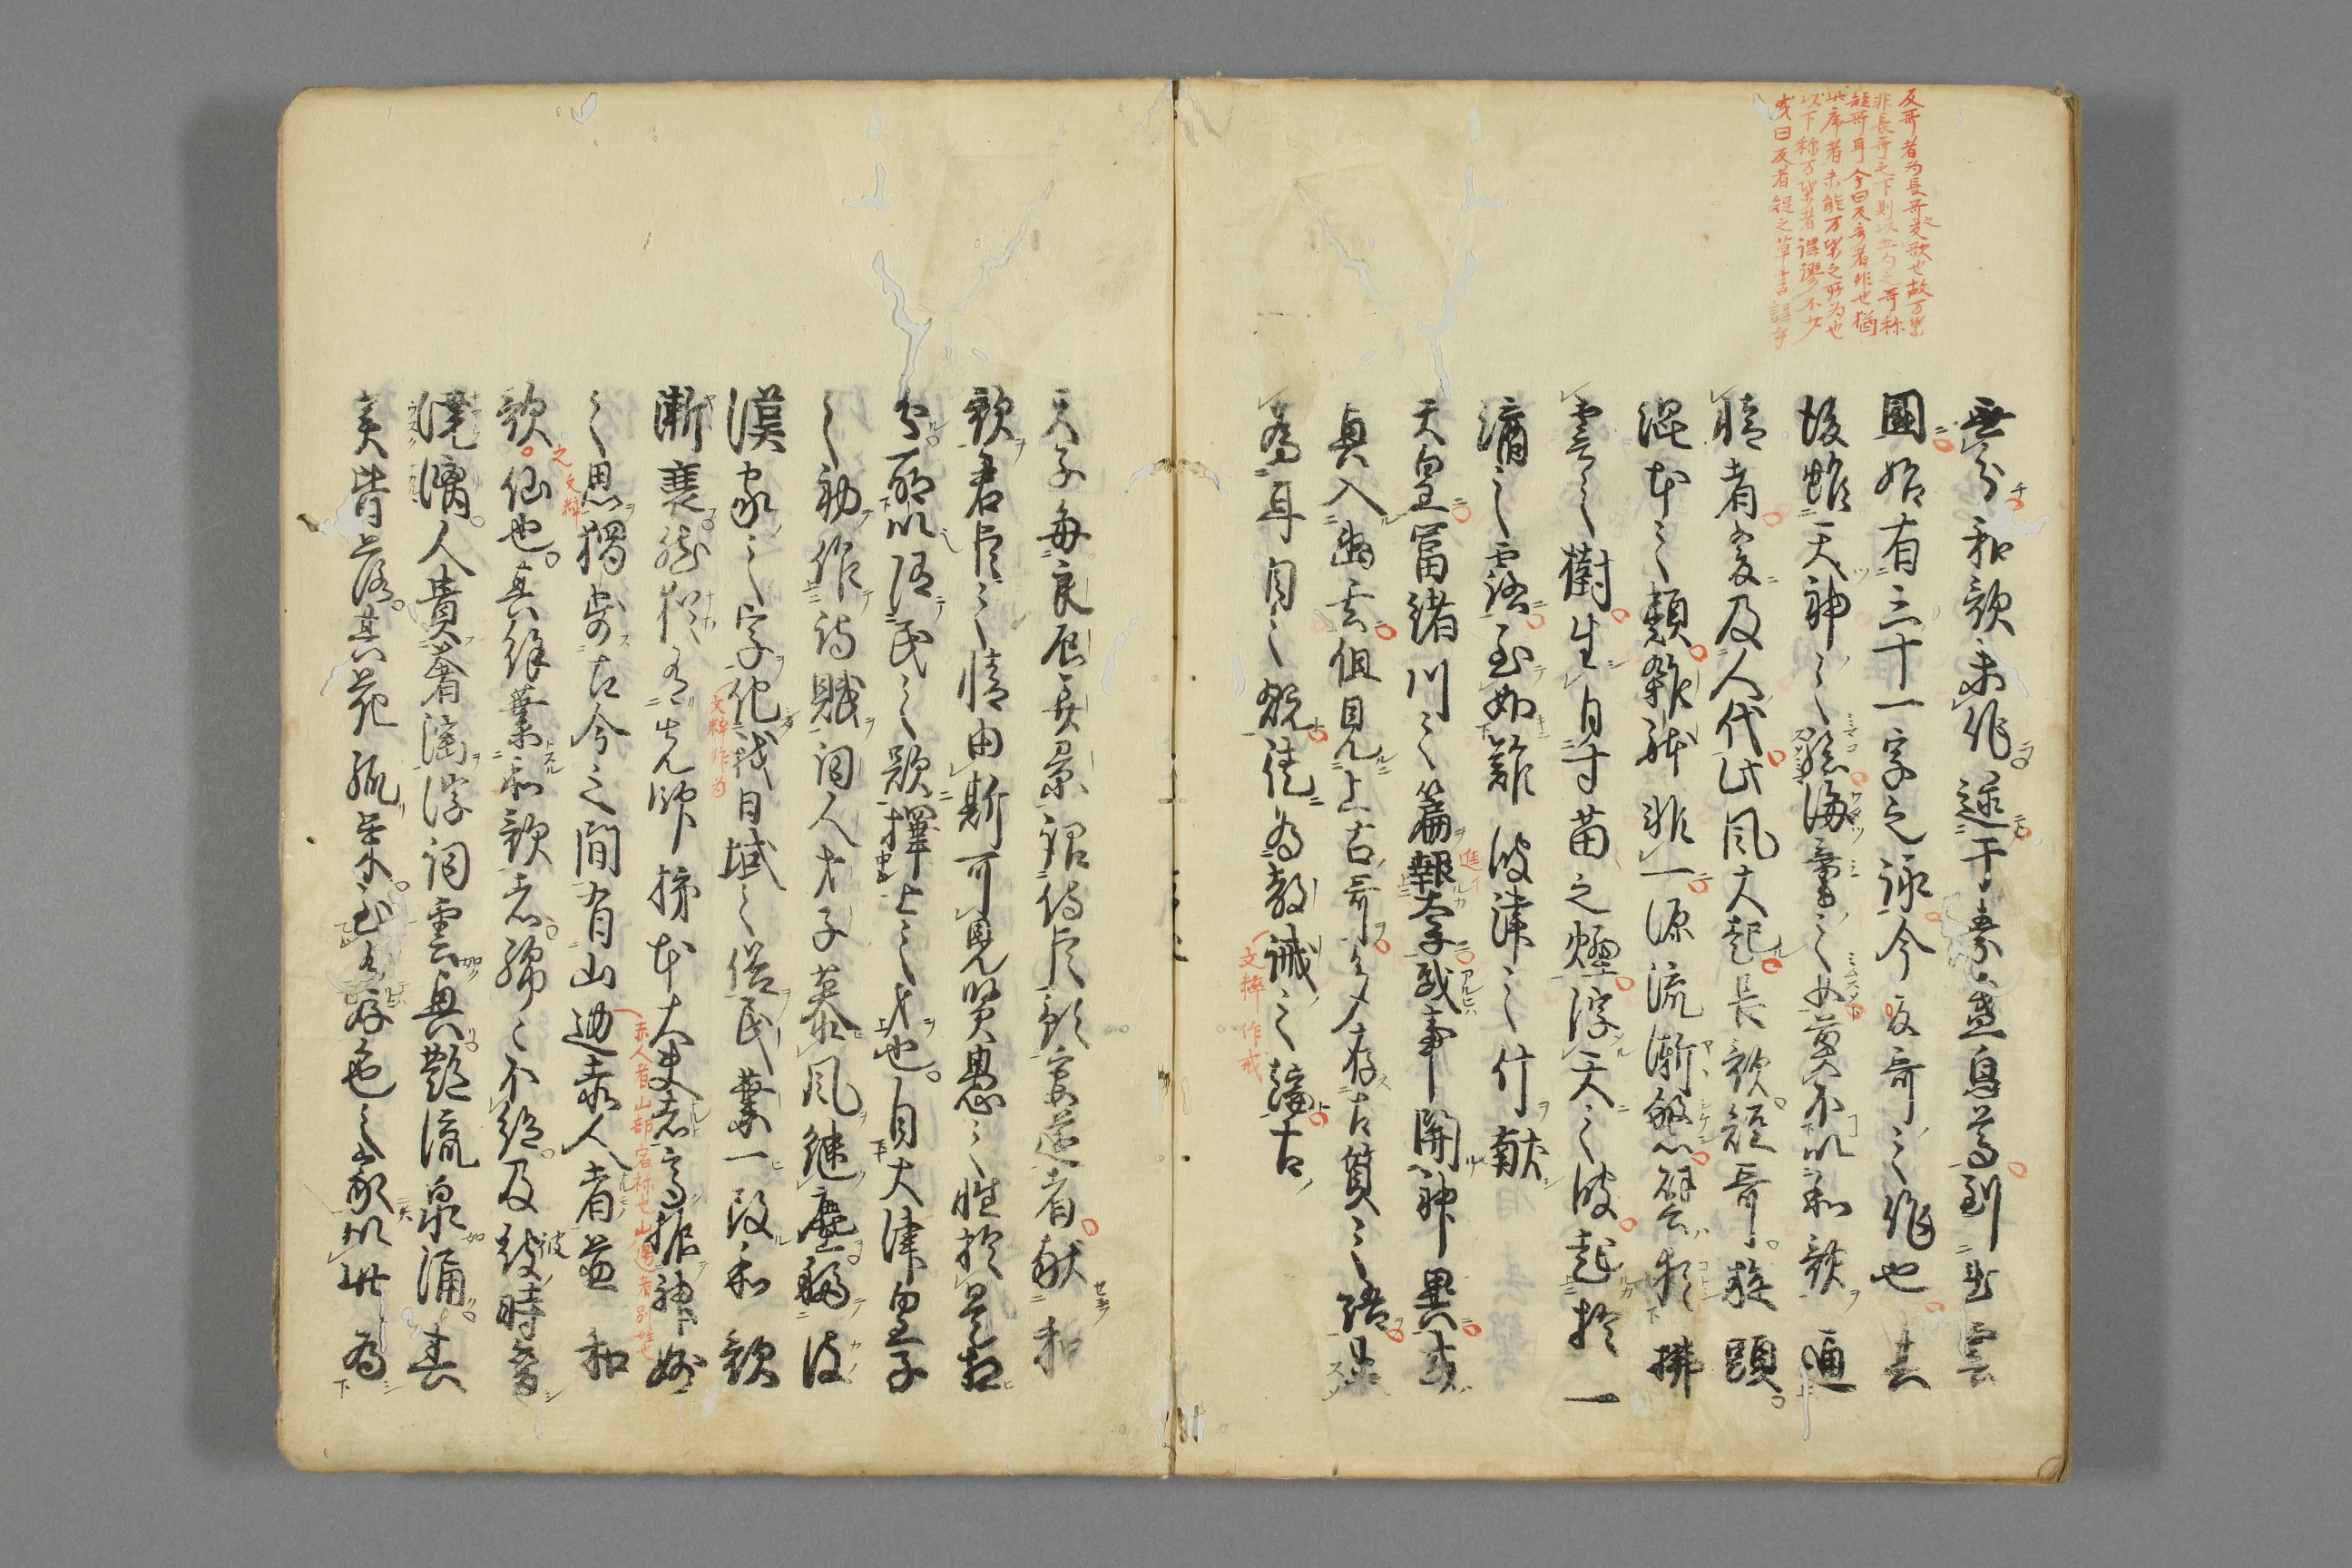 反哥者为長哥之反歌也故万葉
非長哥之下則以五句之哥称
短哥耳今曰反哥者非也猶
此序者未能万葉之所为也
以下称万葉者誤謬不少
或曰反者短之草書誤乎
無分和歌未作逮于素盞烏尊到出雲
國始有三十一字之詠今反哥之作也其
後雖天神之孫海童之女莫不以和歌通
情者爰及人代此風大起長歌短哥旋頭
混本之類雜躰非一源流漸繁譬猶拂
雲之樹生自寸苗之煙浮天之波起於一
滴之露至如難波津之什献
天皇富緒川之篇報太子或事関神異或
興入幽玄但見上古哥多存古質之語未
為耳目之翫徒為教誡之端古
進イ
文粋作戒
天子每良辰美景詔侍臣預宴筵者献和
歌君臣之情由斯可見賢愚之性於是相
分所以随民之欲擇士之才也自大津皇子
之初作詩賦詞人才子慕風継塵移彼
漢家之字化我日域之俗民業一改和歌
文粋作为
漸衰然猶有先師柿本大夫者高振神妙
之思獨步古今之間有山邊赤人者並和
赤人者山部宿祢也山邊者別姓也
歌仙也其餘業和歌者綿々不絶及彼時變
之文粋
澆漓人貴奢淫浮詞雲興艶流泉涌其
実皆落其花孤栄至有好色之家以此為